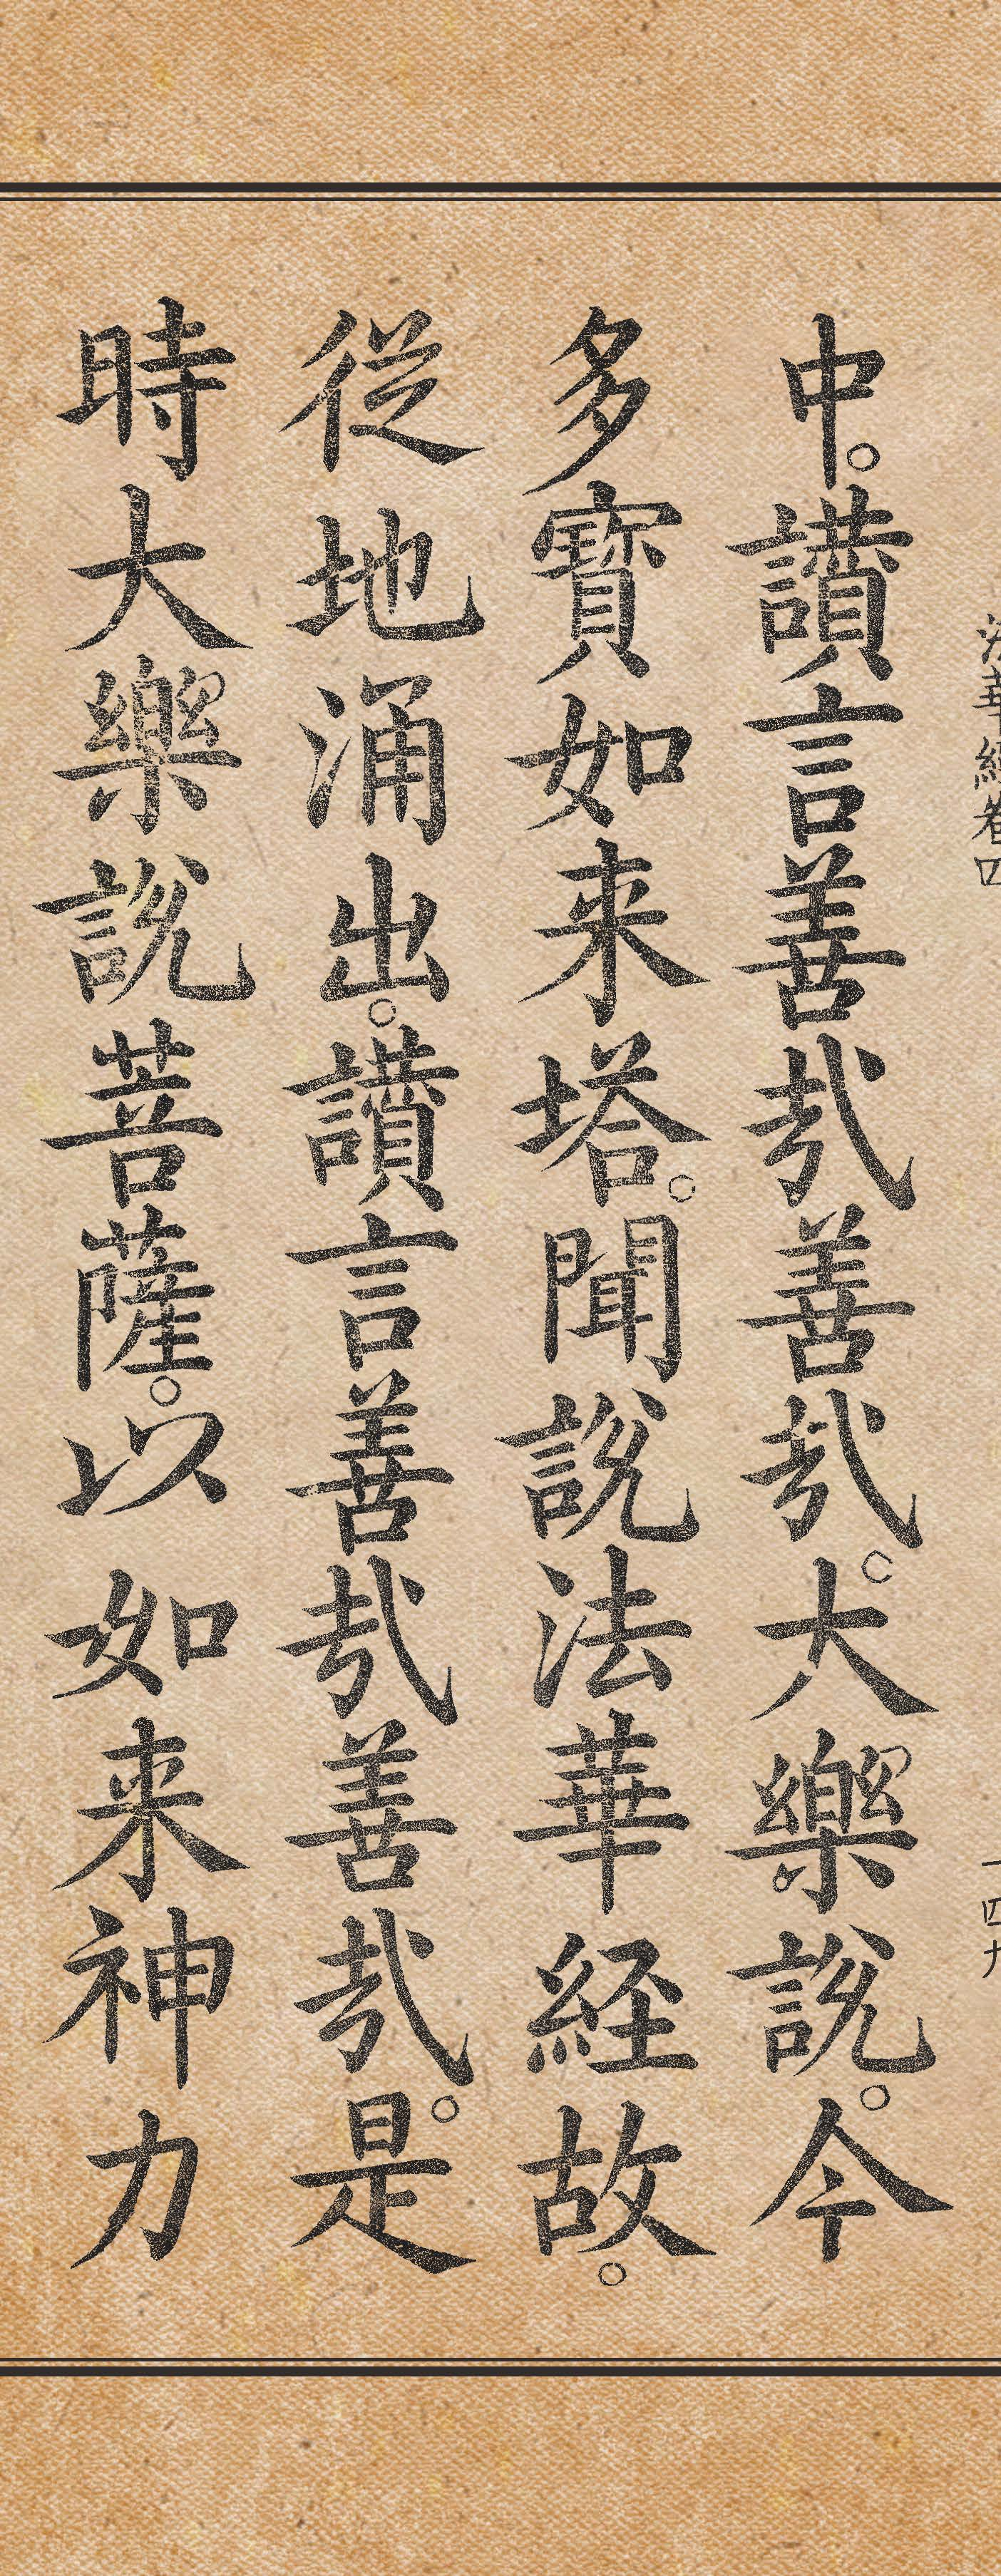 法華経卷四 一四九
中。讃言善哉善哉。大樂說。今
多寶如来塔。聞說法華経故。
従地涌出。讃言善哉善哉。是
時大樂說菩薩。以如来神力